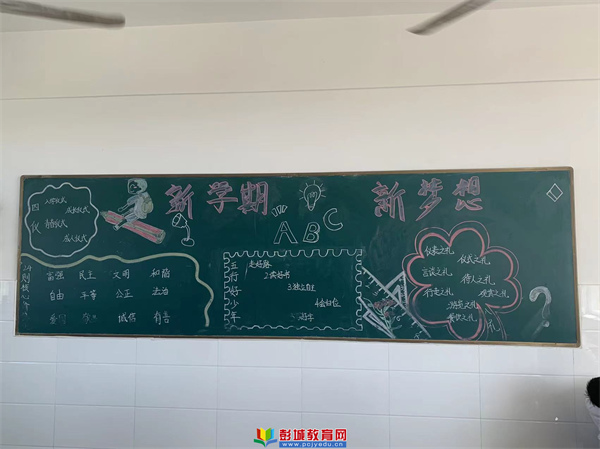 新学期
新梦想
ABC
四仪
入学仪式
成长仪式
青春仪式
成人仪式
富强 民主 文明 和谐
自由 平等 公正 法治
爱国 敬业 诚信 友善
五行好少年
1走好路
2读好书
仪表之礼
仪式之礼
言谈之礼
待人之礼
行走之礼
观赏之礼
游览之礼
餐饮之礼
彭城教育网
www.pcjyedu.cn